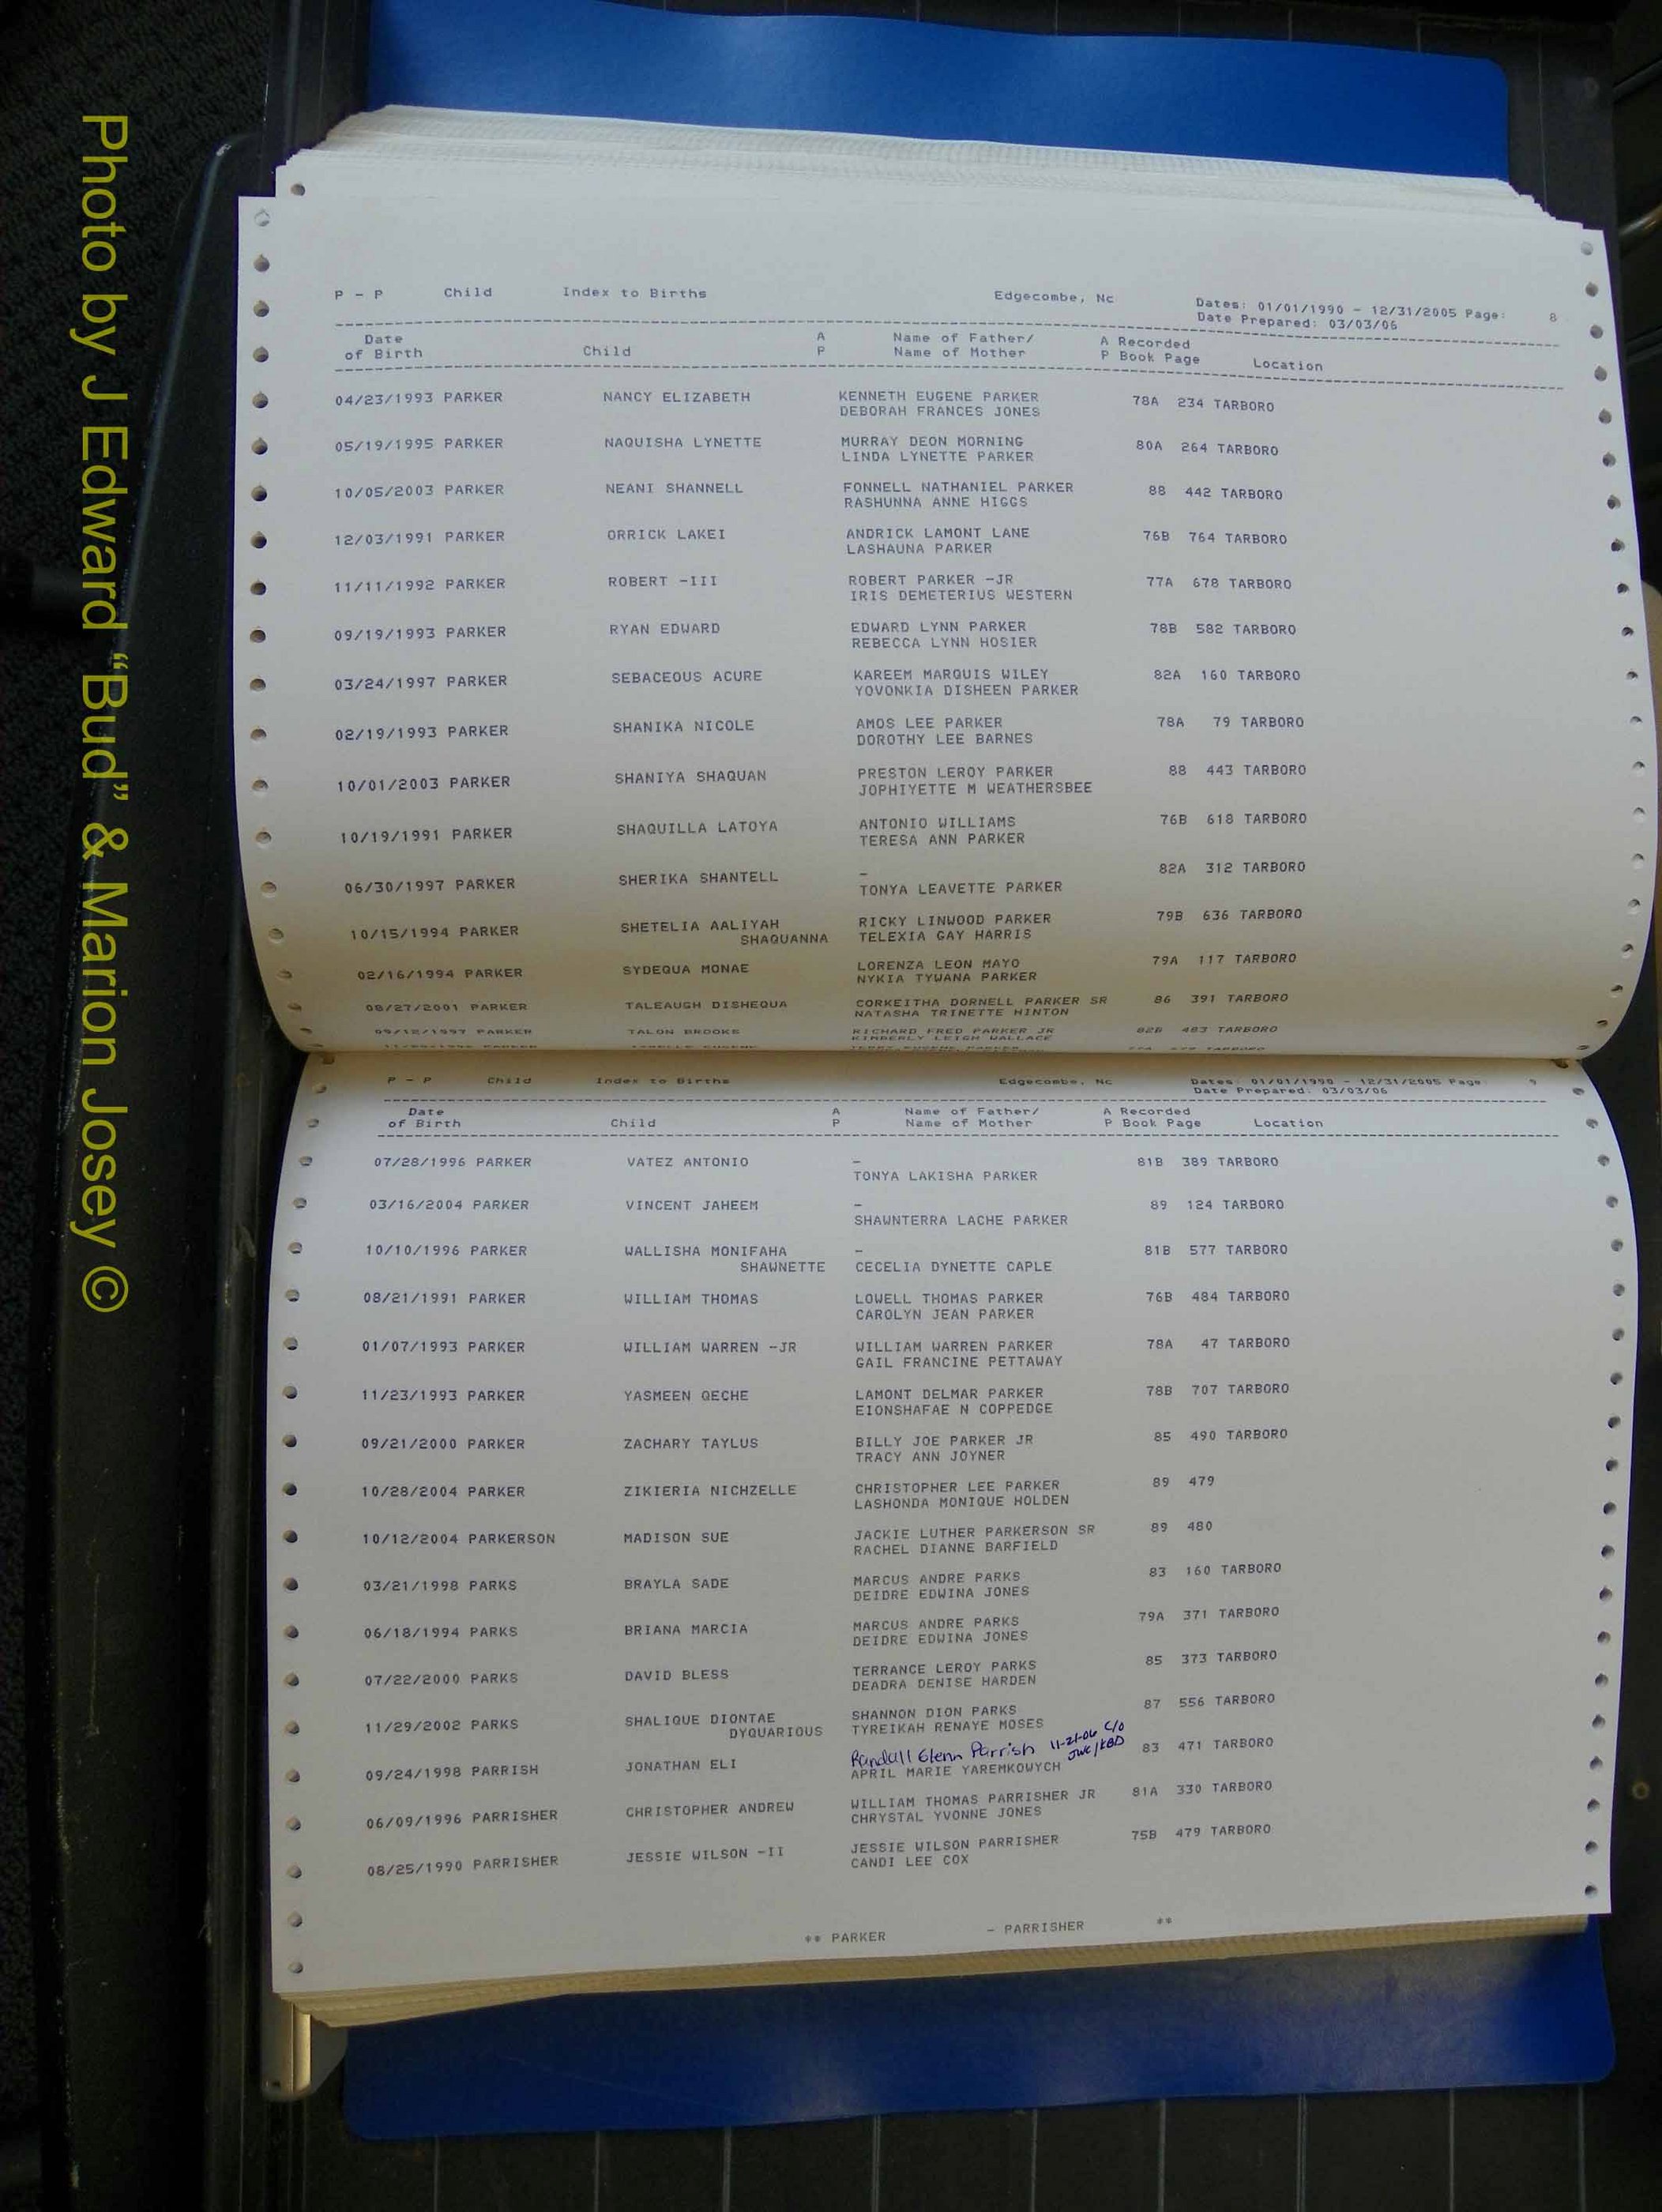 P - P Child Index to Births Edgecombe, Nc Dates: 01/01/1990 - 12/31/2005 Page: 8
Date Prepared: 03/03/06
Date A Name of Father/ A Recorded
of Birth Child P Name of Mother P Book Page Location
04/23/1993 PARKER NANCY ELIZABETH KENNETH EUGENE PARKER 78A 234 TARBORO
DEBORAH FRANCES JONES
05/19/1995 PARKER NAQUISHA LYNETTE MURRAY DEON MORNING 80A 264 TARBORO
LINDA LYNETTE PARKER
10/05/2003 PARKER NEANI SHANNELL FONNELL NATHANIEL PARKER 88 442 TARBORO
RASHUNNA ANNE HIGGS
12/03/1991 PARKER ORRICK LAKEI ANDRICK LAMONT LANE 76B 764 TARBORO
LASHAUNA PARKER
11/11/1992 PARKER ROBERT -III ROBERT PARKER -JR 77A 678 TARBORO
IRIS DEMETERIUS WESTERN
09/19/1993 PARKER RYAN EDWARD EDWARD LYNN PARKER 78B 582 TARBORO
REBECCA LYNN HOSIER
03/24/1997 PARKER SEBACEOUS ACURE KAREEM MARQUIS WILEY 82A 160 TARBORO
YOVONKIA DISHEEN PARKER
02/19/1993 PARKER SHANIKA NICOLE AMOS LEE PARKER 78A 79 TARBORO
DOROTHY LEE BARNES
10/01/2003 PARKER SHANIYA SHAQUAN PRESTON LEROY PARKER 88 443 TARBORO
JOPHIYETTE M WEATHERSBEE
10/19/1991 PARKER SHAQUILLA LATOYA ANTONIO WILLIAMS 76B 618 TARBORO
TERESA ANN PARKER
06/30/1997 PARKER SHERIKA SHANTELL - 82A 312 TARBORO
TONYA LEAVETTE PARKER
10/15/1994 PARKER SHETELIA AALIYAH RICKY LINWOOD PARKER 79B 636 TARBORO
SHAQUANNA TELEXIA GAY HARRIS
02/16/1994 PARKER SYDEQUA MONAE LORENZA LEON MAYO 79A 117 TARBORO
NYKIA TYWANA PARKER
08/27/2001 PARKER TALEAUGH DISHEQUA CORKEITHA DORNELL PARKER SR 86 391 TARBORO
NATASHA TRINETTE HINTON
09/12/1997 PARKER TALON BROOKE RICHARD FRED PARKER JR 82B 483 TARBORO
KIMBERLY LEIGH WALLACE
P - P Child Index to Births Edgecombe, Nc Dates: 01/01/1990 - 12/31/2005 Page: 9
Date Prepared: 03/03/06
Date A Name of Father/ A Recorded
of Birth Child P Name of Mother P Book Page Location
07/28/1996 PARKER VATEZ ANTONIO - 81B 389 TARBORO
TONYA LAKISHA PARKER
03/16/2004 PARKER VINCENT JAHEEM - 89 124 TARBORO
SHAWNTERRA LACHE PARKER
10/10/1996 PARKER WALLISHA MONIFAHA - 81B 577 TARBORO
SHAWNETTE CECELIA DYNETTE CAPLE
08/21/1991 PARKER WILLIAM THOMAS LOWELL THOMAS PARKER 76B 484 TARBORO
CAROLYN JEAN PARKER
01/07/1993 PARKER WILLIAM WARREN -JR WILLIAM WARREN PARKER 78A 47 TARBORO
GAIL FRANCINE PETTAWAY
11/23/1993 PARKER YASMEEN QECHE LAMONT DELMAR PARKER 78B 707 TARBORO
EIONSHAFAE N COPPEDGE
09/21/2000 PARKER ZACHARY TAYLUS BILLY JOE PARKER JR 85 490 TARBORO
TRACY ANN JOYNER
10/28/2004 PARKER ZIKIERIA NICHZELLE CHRISTOPHER LEE PARKER 89 479
LASHONDA MONIQUE HOLDEN
10/12/2004 PARKERSON MADISON SUE JACKIE LUTHER PARKERSON SR 89 480
RACHEL DIANNE BARFIELD
03/21/1998 PARKS BRAYLA SADE MARCUS ANDRE PARKS 83 160 TARBORO
DEIDRE EDWINA JONES
06/18/1994 PARKS BRIANA MARCIA MARCUS ANDRE PARKS 79A 371 TARBORO
DEIDRE EDWINA JONES
07/22/2000 PARKS DAVID BLESS TERRANCE LEROY PARKS 85 373 TARBORO
DEADRA DENISE HARDEN
11/29/2002 PARKS SHALIQUE DIONTAE SHANNON DION PARKS 87 556 TARBORO
DYQUARIOUS TYREIKAH RENAYE MOSES
09/24/1998 PARRISH JONATHAN ELI Randall Glenn Parrish 11-21-06 C/O JWC/KBD 83 471 TARBORO
APRIL MARIE YAREMKOWYCH
06/09/1996 PARRISHER CHRISTOPHER ANDREW WILLIAM THOMAS PARRISHER JR 81A 330 TARBORO
CHRYSTAL YVONNE JONES
08/25/1990 PARRISHER JESSIE WILSON -II JESSIE WILSON PARRISHER 75B 479 TARBORO
CANDI LEE COX
** PARKER - PARRISHER **
Photo by J Edward "Bud" & Marion Josey ©